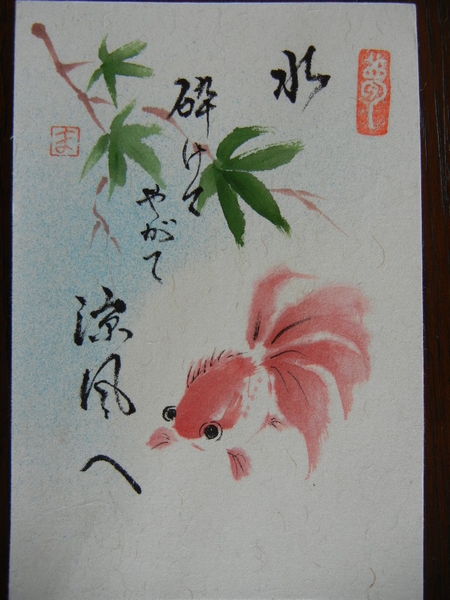 水
砕けて
やがて
涼風へ
夢
ま